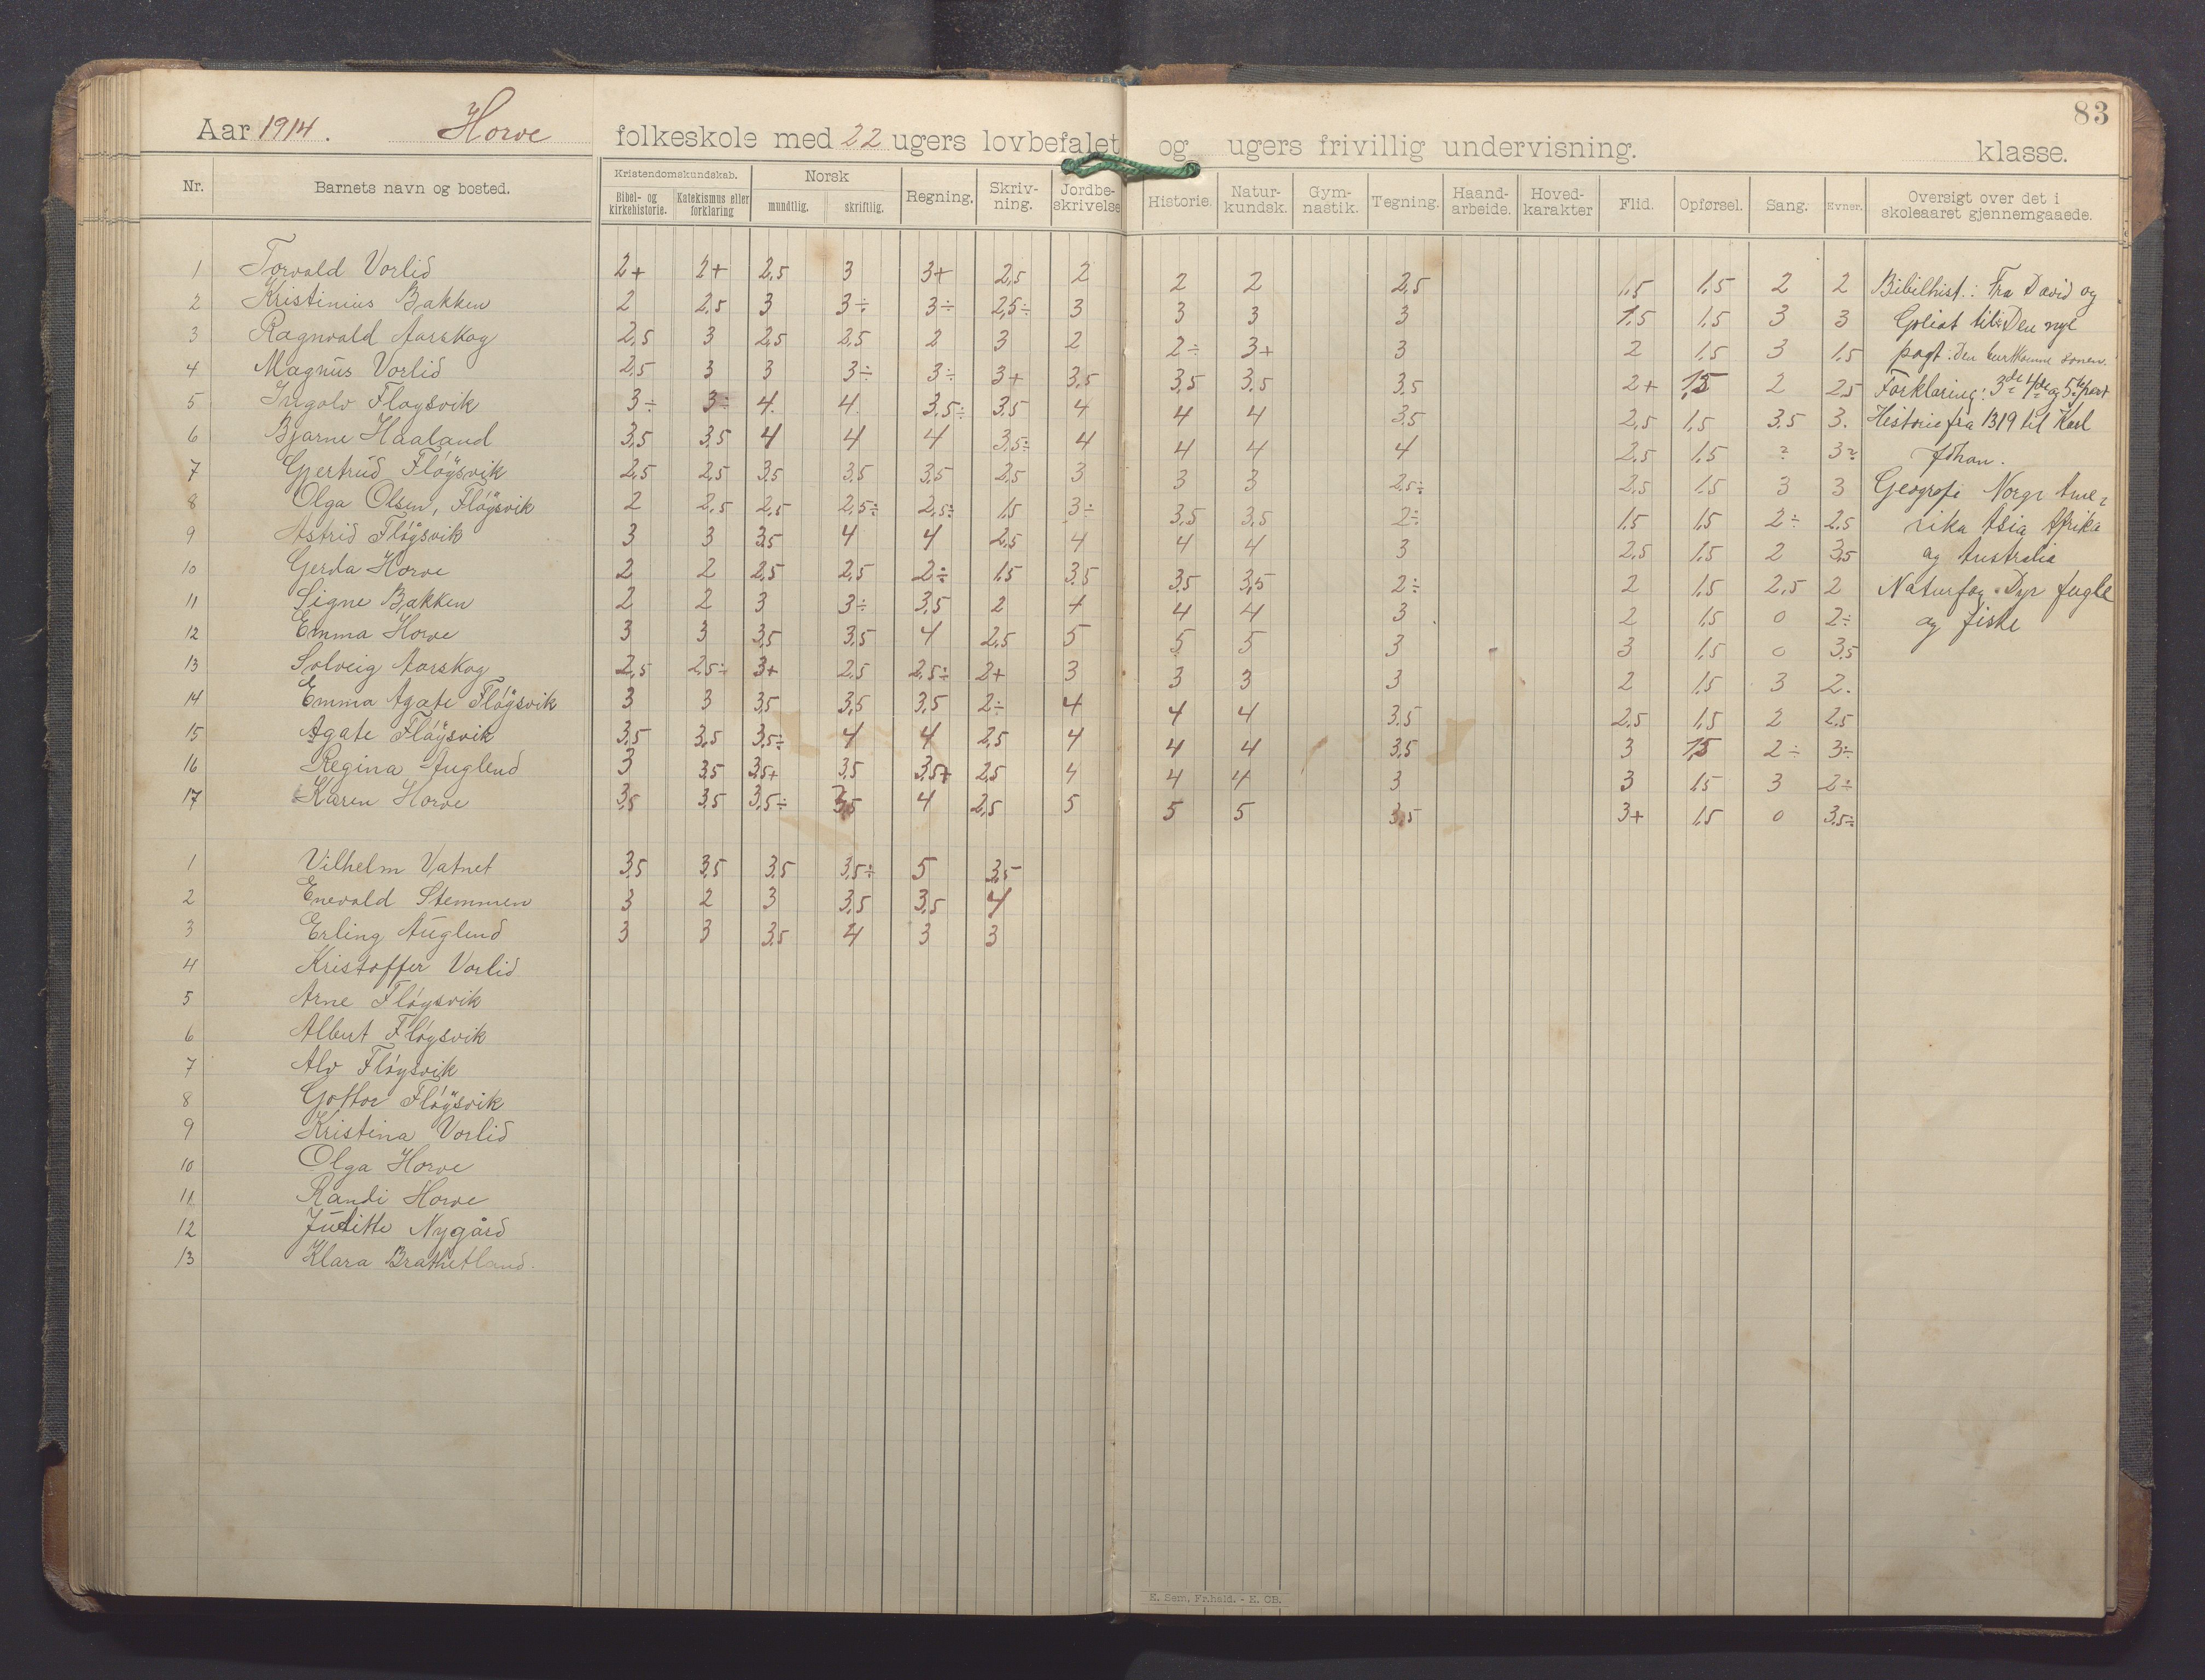 83
Aar 1914. Horve folkeskole med 22 ugers lovbefalet og ugers frivillig undervisning. klasse.
Nr. Barnets navn og bosted. Kristendomskundskab. Bibel- og kirkehistorie. Katekismus eller forklaring Norsk mundtlig. skriftlig. Regning. Skriv-ning. Jordbe-skrivelse Historie. Natur-kundsk. Gym-nastik. Tegning. Haand-arbeide. Hoved-karakter Flid. Opførsel. Sang. Evner. Oversigt over det i skoleaaret gjennemgaaede.
1 Torvald Vorlid 2+ 2+ 2,5 3 3+ 2,5 2 2 2 2,5 1,5 1,5 2 2 Bibelhist.: Fra David og
2 Kristinius Bakken 2 2,5 3 3÷ 3÷ 2,5÷ 3 3 3 3 1,5 1,5 3 3 Goliat til: Den nye
3 Ragnvald Aarskog 2,5 3 2,5 2,5 2 3 2 2÷ 3+ 3 2 1,5 3 1,5 pagt. Den sønen.
4 Magnus Vorlid 2,5 3 3 3÷ 3÷ 3+ 3,5 3,5 3,5 3,5 2+ 1,5 2 2,5 Forklaring: 3de 4de og 5te part
5 Ingolv Fløysvik 3÷ 3÷ 4 4 3,5÷ 3,5 4 4 4 3,5 2,5 1,5 3,5 3. Historie fra 1319 til Karl
6 Bjarne Haaland 3,5 3,5 4 4 4 3,5÷ 4 4 4 4 2,5 1,5 ? 3? Johan.
7 Gjertrud Fløysvik 2,5 2,5 3,5 3,5 3,5 2,5 3 3 3 2,5÷ 2,5 1,5 3 3 Geografi Norge Ame-
8 Olga Olsen, Fløysvik 2 2,5 2,5 2,5÷ 2,5÷ 1,5 3÷ 3,5 3,5 2÷ 1,5 1,5 2÷ 2,5 rika Asia Afrika
9 Astrid Fløysvik 3 3 3,5 4 4 2,5 4 4 4 3 2,5 1,5 2 3,5 og Australia
10 Gerda Horve 2 2 2,5 2,5 2÷ 1,5 3,5 3,5 3,5 2÷ 2 1,5 2,5 2 Naturfag. Dyr fugle
11 Signe Bakken 2 2 3 3÷ 3,5 2 4 4 4 3 2 1,5 0 2÷ og fiske
12 Emma Horve 3 3 3,5 3,5 4 2,5 5 5 5 3 3 1,5 0 3,5
13 Solveig Aarskog 2,5 2,5÷ 3+ 2,5 2,5÷ 2+ 3 3 3 3 2 1,5 3 2.
14 Emma Agate Fløysvik 3 3 3,5 3,5 3,5 2÷ 4 4 4 3,5 2,5 1,5 2 2,5
15 Agate Fløysvik 3,5 3,5 3,5÷ 4 4 2,5 4 4 4 3,5 3 1,5 2÷ 3÷
16 Regina Auglend 3 3,5 3,5+ 3,5 3,5+ 2,5 4 4 4 3 3 1,5 3 2÷
17 Karen Horve 3,5 3,5 3,5÷ 3,5 4 2,5 5 5 5 3,5 3+ 1,5 0 3,5÷
1 Vilhelm Vatnet 3,5 3,5 3,5 3,5÷ 5 3,5
2 Enevald Stemmen 3 2 3 3,5 3,5 4
3 Erling Auglend 3 3 3,5 4 3 3
4 Kristoffer Vorlid
5 Arne Fløysvik
6 Albert Fløysvik
7 Alv Fløysvik
8 Gottor Fløysvik
9 Kristina Vorlid
10 Olga Horve
11 Randi Horve
12 Juditte Nygård
13 Klara Brathetland.
E. Sem, Fr.hald. - E. CB.